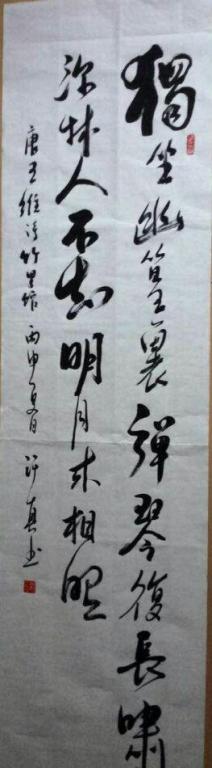 獨坐幽篁裏彈琴復長嘯
深林人不知明月來相照
唐王維詩竹里館丙申夏日許真书